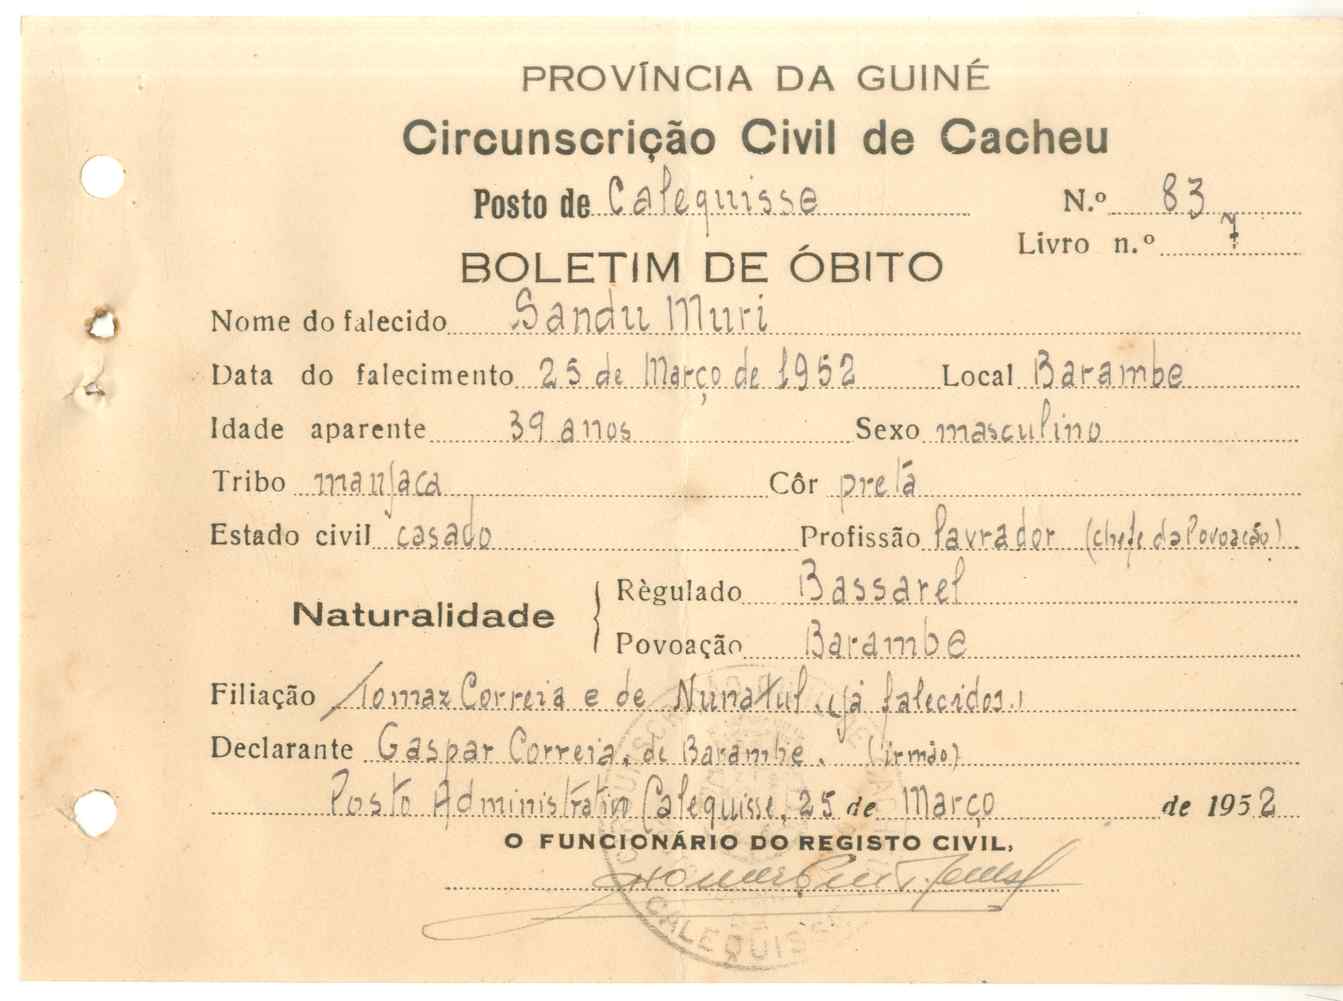 PROVÍNCIA DA GUINÉ
Circunscrição Civil de Cacheu
Posto de Calequisse N.º 83
Livro n.º 7
BOLETIM DE ÓBITO
Nome do falecido Sandu Muri
Data do falecimento 25 de Março de 1952 Local Barambe
Idade aparente 39 anos Sexo masculino
Tribo manjaca Côr preta
Estado civil casado Profissão lavrador (chefe da Povoação)
Naturalidade { Règulado Bassarel
Povoação Barambe
Filiação Tomaz Correia e de Nunatul, já falecidos.
Declarante Gaspar Correia, de Barambe. (irmão)
Posto Administrativo Calequisse, 25 de Março de 1952
O FUNCIONÁRIO DO REGISTO CIVIL,
CALEQUISSE